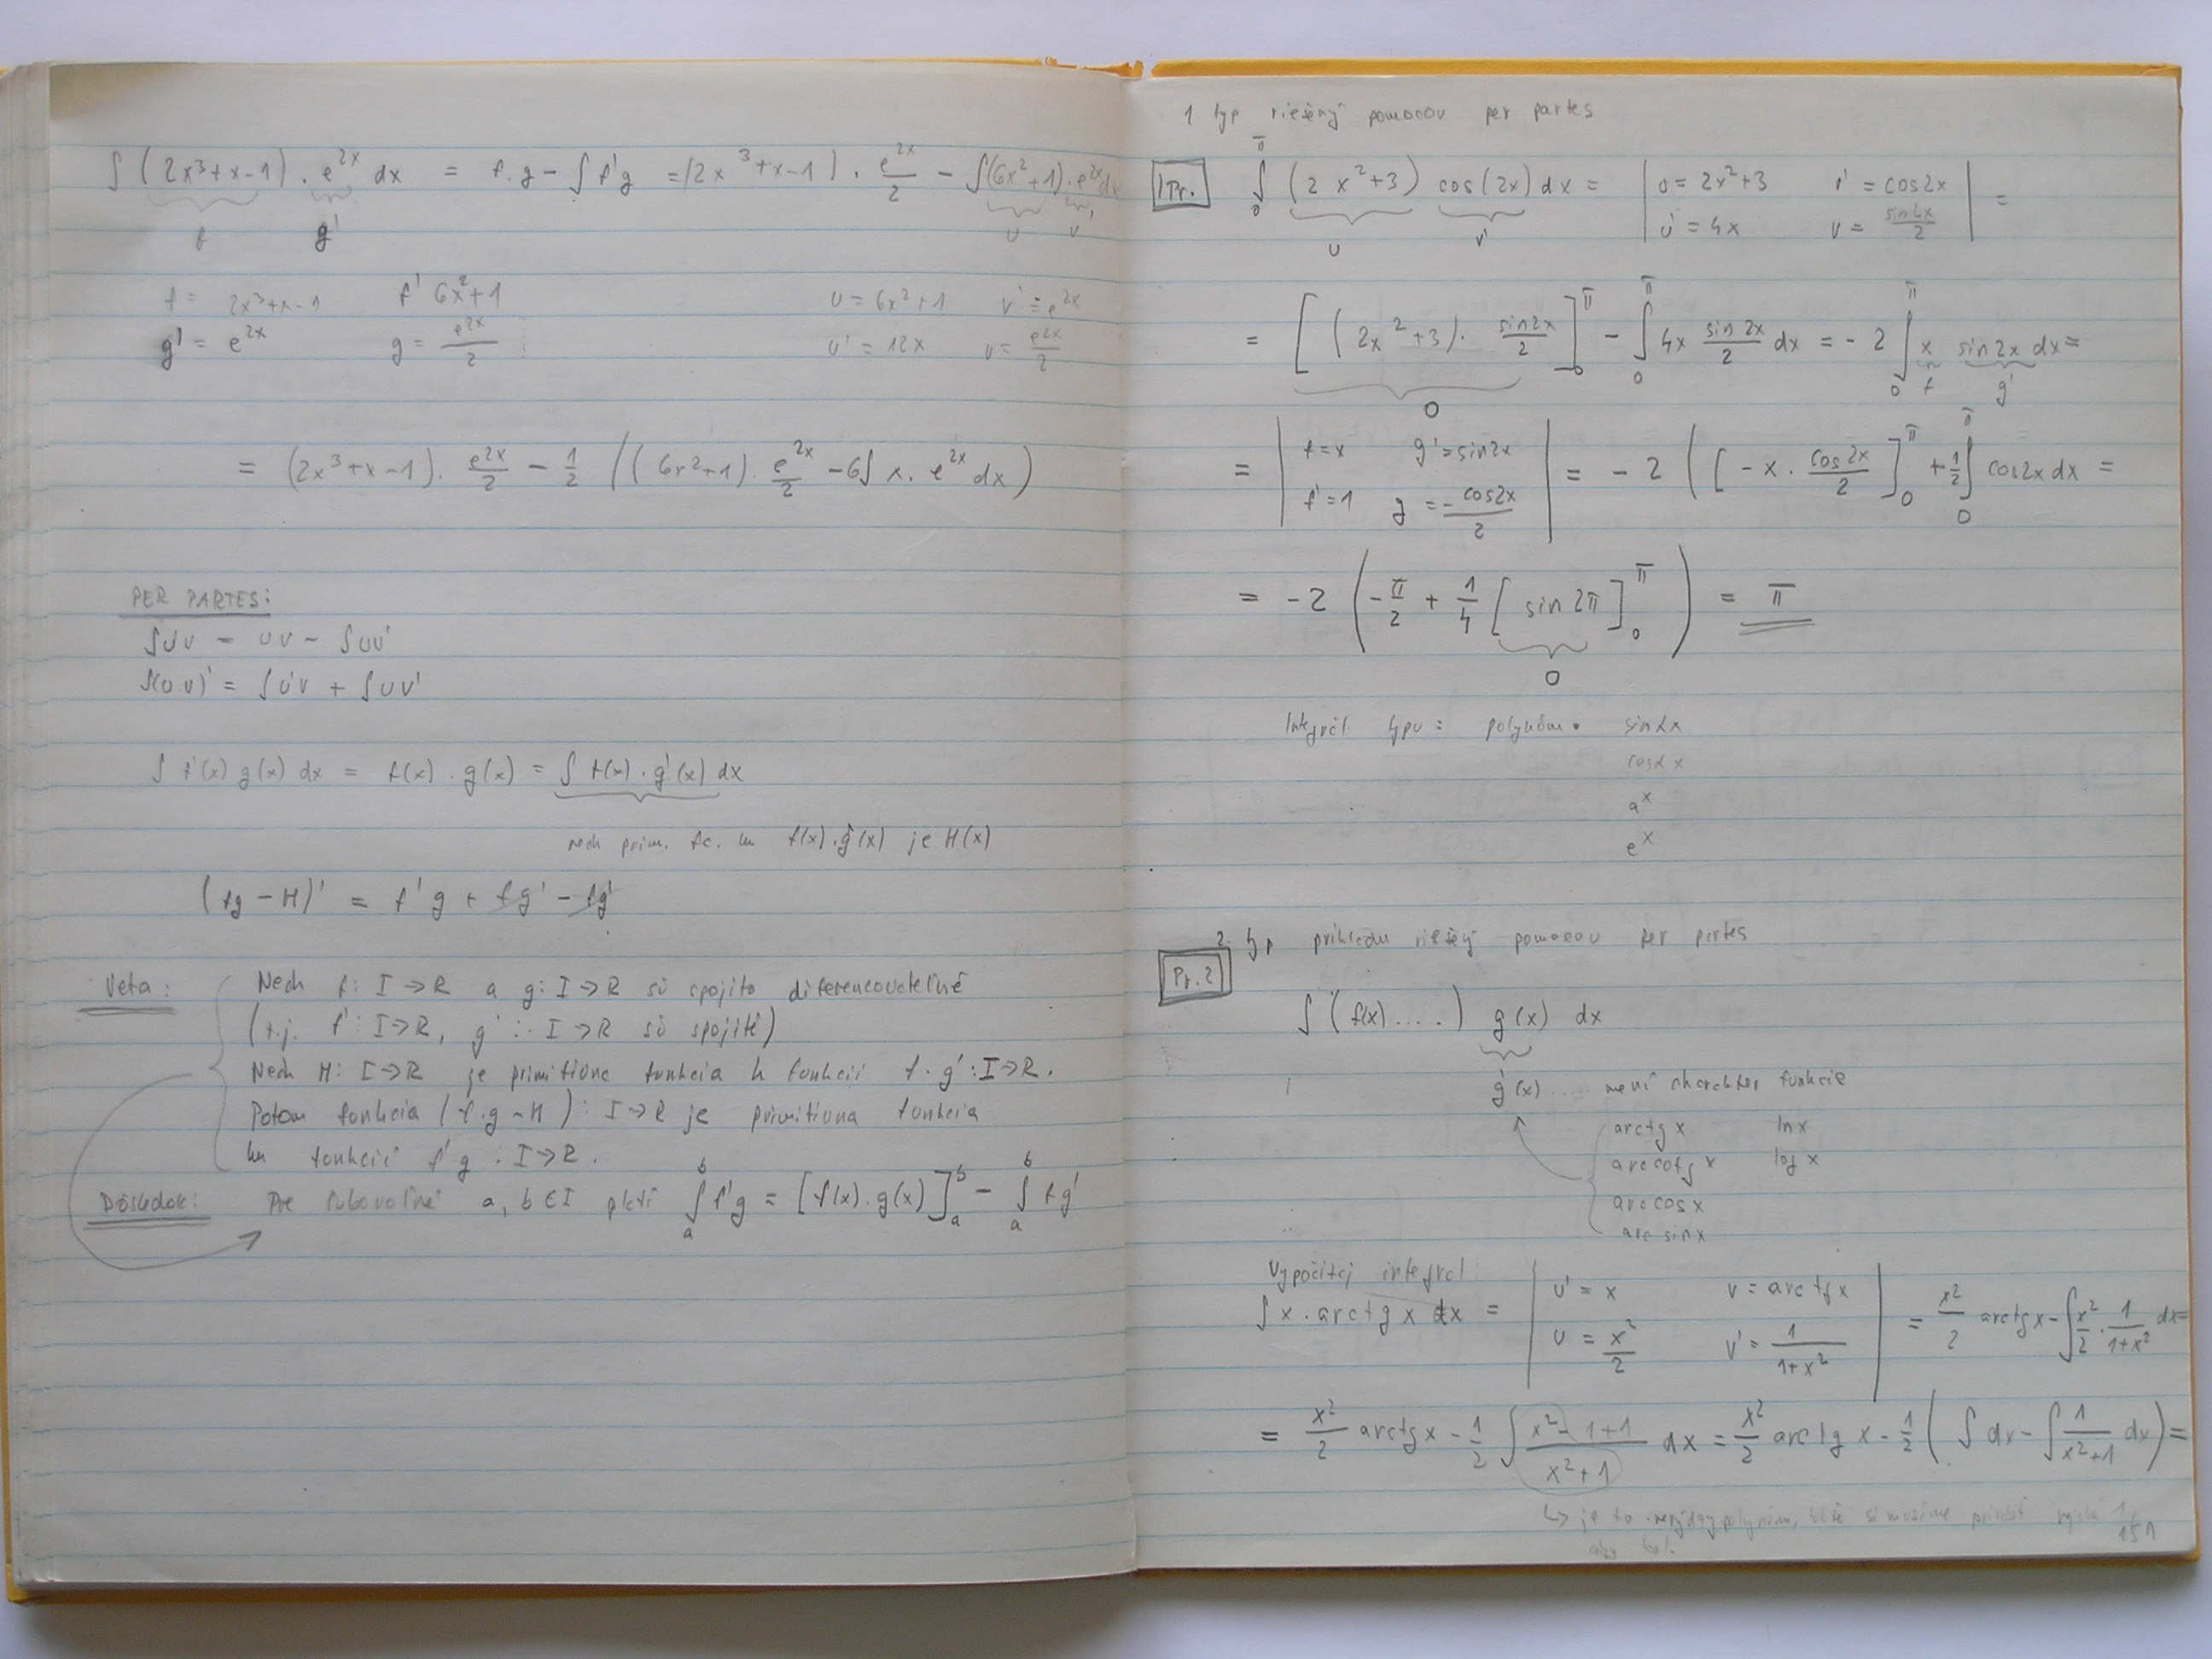 ∫ (2x³+x-1) . e^2x dx = f.g - ∫ f'g = (2x³+x-1) . e^2x/2 - ∫(6x²+1).e^2x dx
f g' u v'
f = 2x³+x-1 f' 6x²+1 u = 6x²+1 v' = e^2x
g' = e^2x g = e^2x/2 u' = 12x v = e^2x/2
= (2x³+x-1). e^2x/2 - 1/2 ((6x²+1). e^2x/2 - 6∫ x. e^2x dx)
PER PARTES:
∫u'v = uv - ∫uv'
∫(u v)' = ∫u'v + ∫uv'
∫ f'(x) g(x) dx = f(x) . g(x) = ∫ f(x) . g'(x) dx
nech prim. fc. ku f(x).g'(x) je H(x)
(fg - H)' = f'g + fg' - fg'
Veta: Nech f: I → R a g: I → R sú spojito diferencovateľné
(t.j. f': I → R, g': I → R sú spojité)
Nech H: I → R je primitívna funkcia k funkcii f.g': I → R.
Potom funkcia (f.g - H): I → R je primitívna funkcia
ku funkcii f'g : I → R.
Dôsledok: Pre ľubovoľné a, b ∈ I platí ∫_a^b f'g = [f(x).g(x)]_a^b - ∫_a^b fg'
1 typ riešený pomocou per partes
1Pr. ∫_0^π (2x²+3) cos(2x) dx = | u = 2x²+3 v' = cos2x
u v' u' = 4x v = sin2x/2 | =
= [(2x²+3). sin2x/2]_0^π - ∫_0^π 4x sin2x/2 dx = -2 ∫_0^π x sin2x dx =
0 f g'
= | f=x g'=sin2x
f'=1 g = -cos2x/2 | = -2 ([-x. cos2x/2]_0^π + 1/2 ∫_0^π cos2x dx =
= -2 (-π/2 + 1/4 [sin 2π]_0^π) = π
0
Integrál typu: polynóm . sinαx
cosαx
a^x
e^x
2. typ príkladu riešený pomocou per partes
Pr.2
∫ (f(x)....) g(x) dx
g'(x) ..... mení charakter funkcie
arctg x ln x
arccotg x log x
arccos x
arc sin x
Vypočítaj integrál
∫ x . arctg x dx = | u' = x v = arctg x
u = x²/2 v' = 1/(1+x²) | = x²/2 arctg x - ∫ x²/2 . 1/(1+x²) dx =
= x²/2 arctg x - 1/2 ∫ (x²-1+1)/(x²+1) dx = x²/2 arctg x - 1/2 (∫ dx - ∫ 1/(x²+1) dx) =
↳ je to